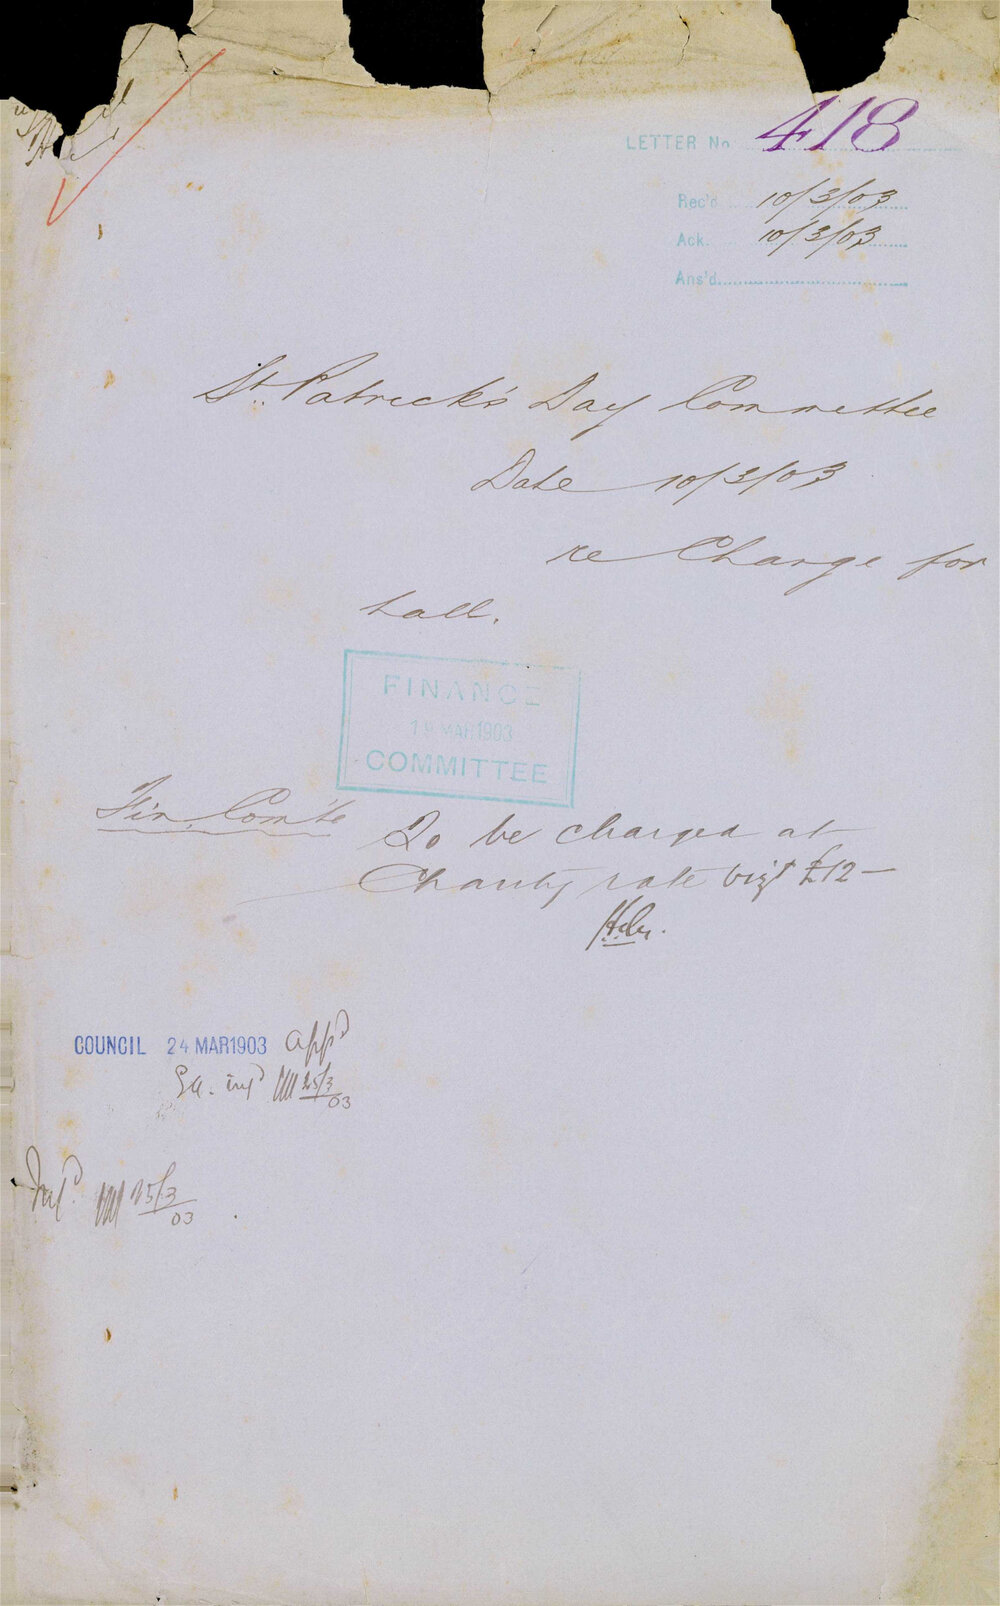 LETTER No 418
Rec'd 10/3/03
Ack. 10/3/03
Ans'd
St. Patrick's Day Committee
Date 10/3/03
re Charge for
hall.
FINANCE
19 MAR 1903
COMMITTEE
Fin. Com'te To be charged at
Charity rate vizt £12 —
COUNCIL 24 MAR 1903 appd
infd 25/3/03
Infd. 25/3/03